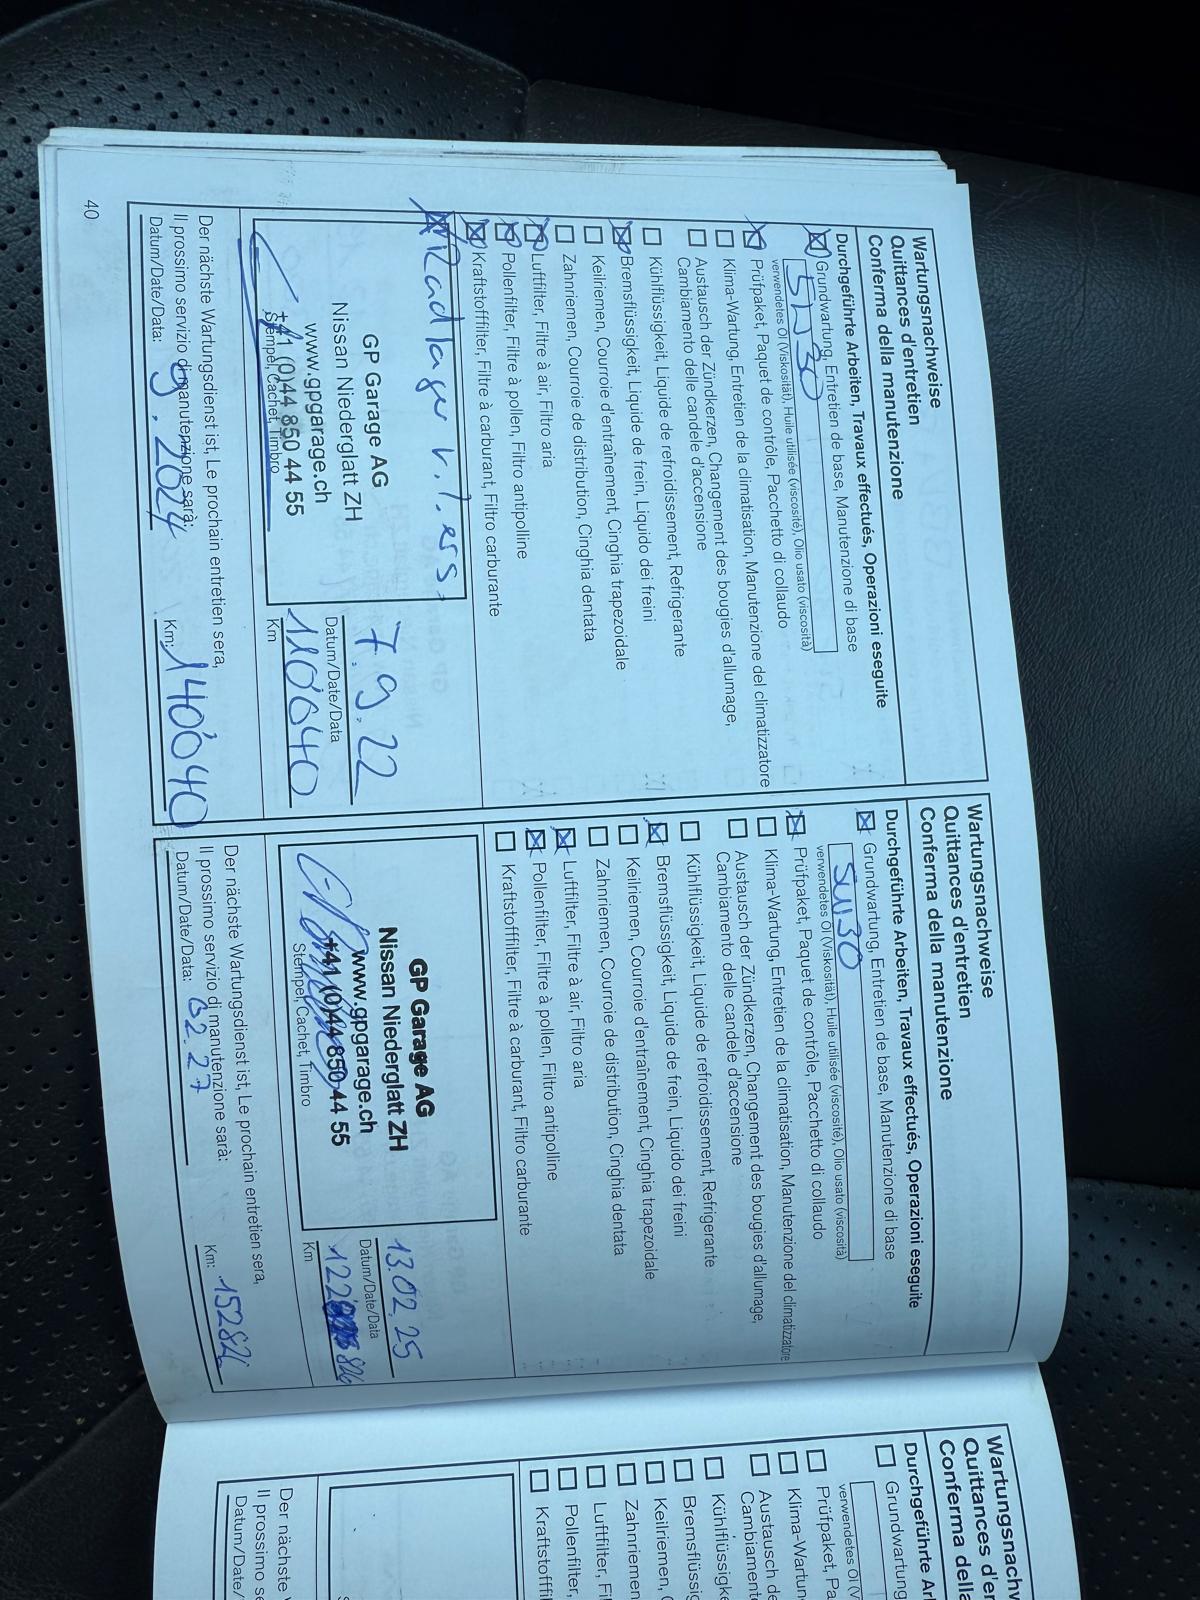 Wartungsnachweise
Quittances d'entretien
Conferma della manutenzione
Durchgeführte Arbeiten, Travaux effectués, Operazioni eseguite
Grundwartung, Entretien de base, Manutenzione di base
5W30
verwendetes Öl (Viskosität), Huile utilisée (viscosité), Olio usato (viscosità)
Prüfpaket, Paquet de contrôle, Pacchetto di collaudo
Klima-Wartung, Entretien de la climatisation, Manutenzione del climatizzatore
Austausch der Zündkerzen, Changement des bougies d'allumage,
Cambiamento delle candele d'accensione
Kühlflüssigkeit, Liquide de refroidissement, Refrigerante
Bremsflüssigkeit, Liquide de frein, Liquido dei freini
Keilriemen, Courroie d'entraînement, Cinghia trapezoidale
Zahnriemen, Courroie de distribution, Cinghia dentata
Luftfilter, Filtre à air, Filtro aria
Pollenfilter, Filtre à pollen, Filtro antipolline
Kraftstofffilter, Filtre à carburant, Filtro carburante
Radlager v.l. ers.
GP Garage AG
Nissan Niederglatt ZH
www.gpgarage.ch
+41 (0)44 850 44 55
Stempel, Cachet, Timbro
7.9.22
Datum/Date/Data
110'040
Km
Der nächste Wartungsdienst ist, Le prochain entretien sera,
Il prossimo servizio di manutenzione sarà:
Datum/Date/Data: 9.2024 Km: 140'040
40
Wartungsnachweise
Quittances d'entretien
Conferma della manutenzione
Durchgeführte Arbeiten, Travaux effectués, Operazioni eseguite
Grundwartung, Entretien de base, Manutenzione di base
5W30
verwendetes Öl (Viskosität), Huile utilisée (viscosité), Olio usato (viscosità)
Prüfpaket, Paquet de contrôle, Pacchetto di collaudo
Klima-Wartung, Entretien de la climatisation, Manutenzione del climatizzatore
Austausch der Zündkerzen, Changement des bougies d'allumage,
Cambiamento delle candele d'accensione
Kühlflüssigkeit, Liquide de refroidissement, Refrigerante
Bremsflüssigkeit, Liquide de frein, Liquido dei freini
Keilriemen, Courroie d'entraînement, Cinghia trapezoidale
Zahnriemen, Courroie de distribution, Cinghia dentata
Luftfilter, Filtre à air, Filtro aria
Pollenfilter, Filtre à pollen, Filtro antipolline
Kraftstofffilter, Filtre à carburant, Filtro carburante
GP Garage AG
Nissan Niederglatt ZH
www.gpgarage.ch
+41 (0)44 850 44 55
Stempel, Cachet, Timbro
13.02.25
Datum/Date/Data
Km
Der nächste Wartungsdienst ist, Le prochain entretien sera,
Il prossimo servizio di manutenzione sarà:
Datum/Date/Data: 02.27 Km: 152826
Wartungsnachw
Quittances d'er
Conferma della
Durchgeführte Ar
Grundwartung
verwendetes Öl (V
Prüfpaket, Pa
Klima-Wartun
Austausch de
Cambiament
Kühlflüssigke
Bremsflüssig
Keilriemen, C
Zahnriemen
Luftfilter, Fi
Pollenfilter,
Kraftstofffil
Der nächste
Il prossimo se
Datum/Date/